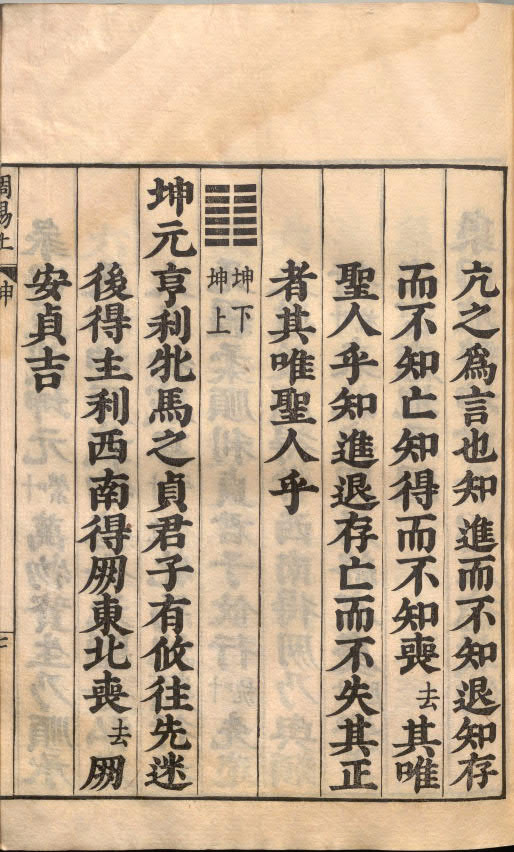 亢之爲言也知進而不知退知存
而不知亡知得而不知喪去其唯
聖人乎知進退存亡而不失其正
者其唯聖人乎
䷁坤下坤上
坤元亨利牝馬之貞君子有攸往先迷
後得主利西南得朋東北喪去朋
安貞吉
周易上 坤